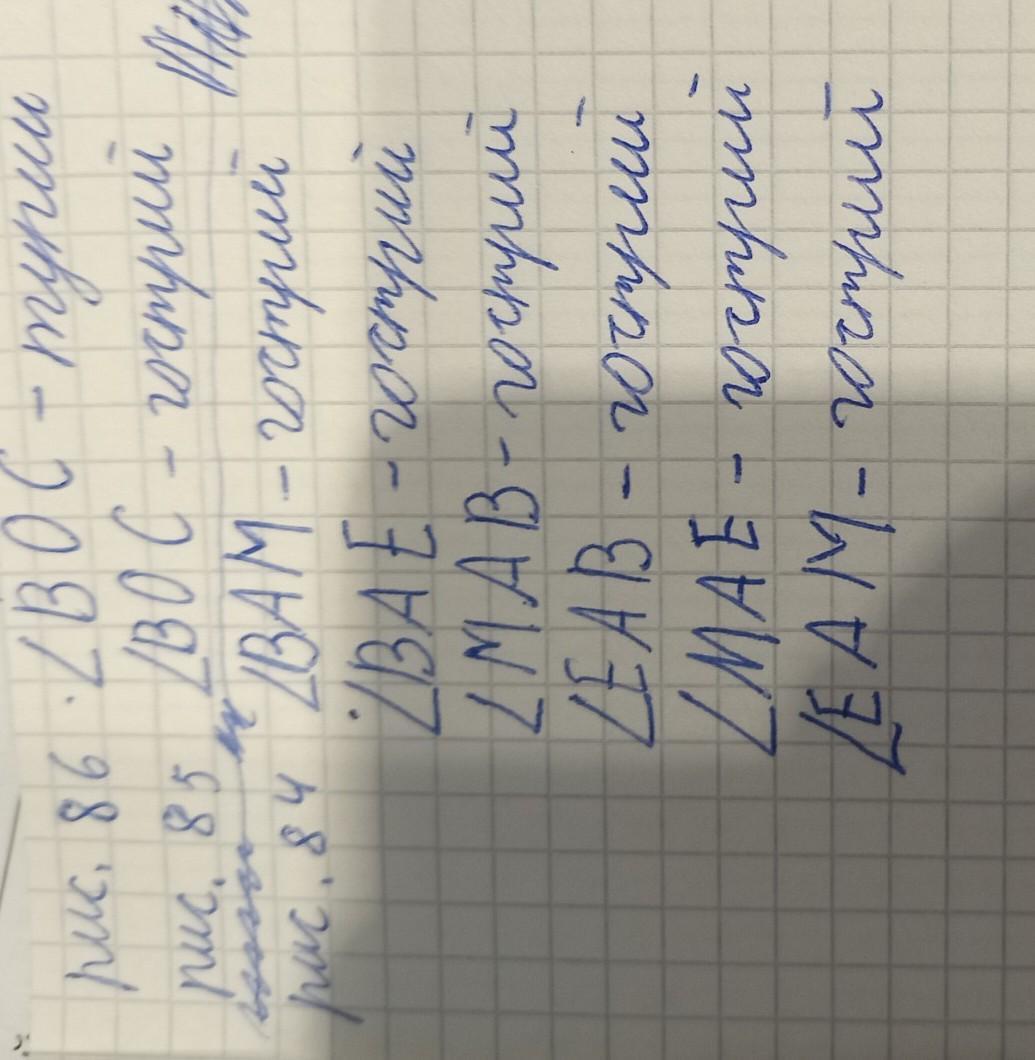 рис. 86 ∠BOC - тупий
рис. 85 ∠BOC - гострий
рис. 84 ∠BAM - гострий
∠BAE - гострий
∠MAB - гострий
∠EAB - гострий
∠MAE - гострий
∠EAM - гострий